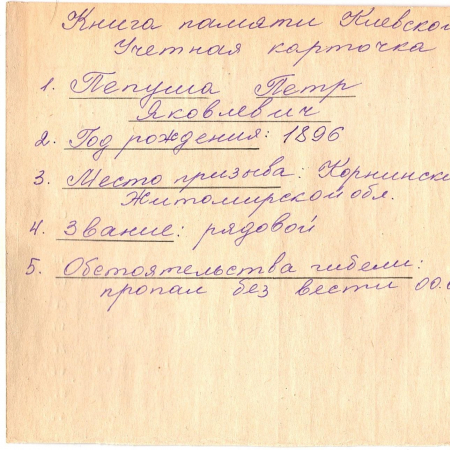 Книга памяти Киевской
Учетная карточка
1. Пепуша Петр
Яковлевич
2. Год рождения: 1896
3. Место призыва: Корнински
Житомирской обл.
4. Звание: рядовой
5. Обстоятельства гибели:
пропал без вести 00.0